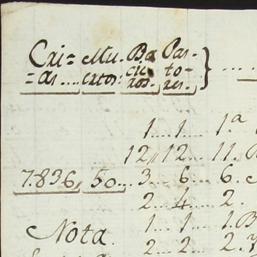 Cri= Mu. Ba Pas-
=as.... ertos. cíos to-
res.
1... 1... 1.ª
12, 12... 11.
7.836, 50... 3... 6... 6.
2... 4... 2.
Nota. 1... 1... 1.
2... 2... 2.